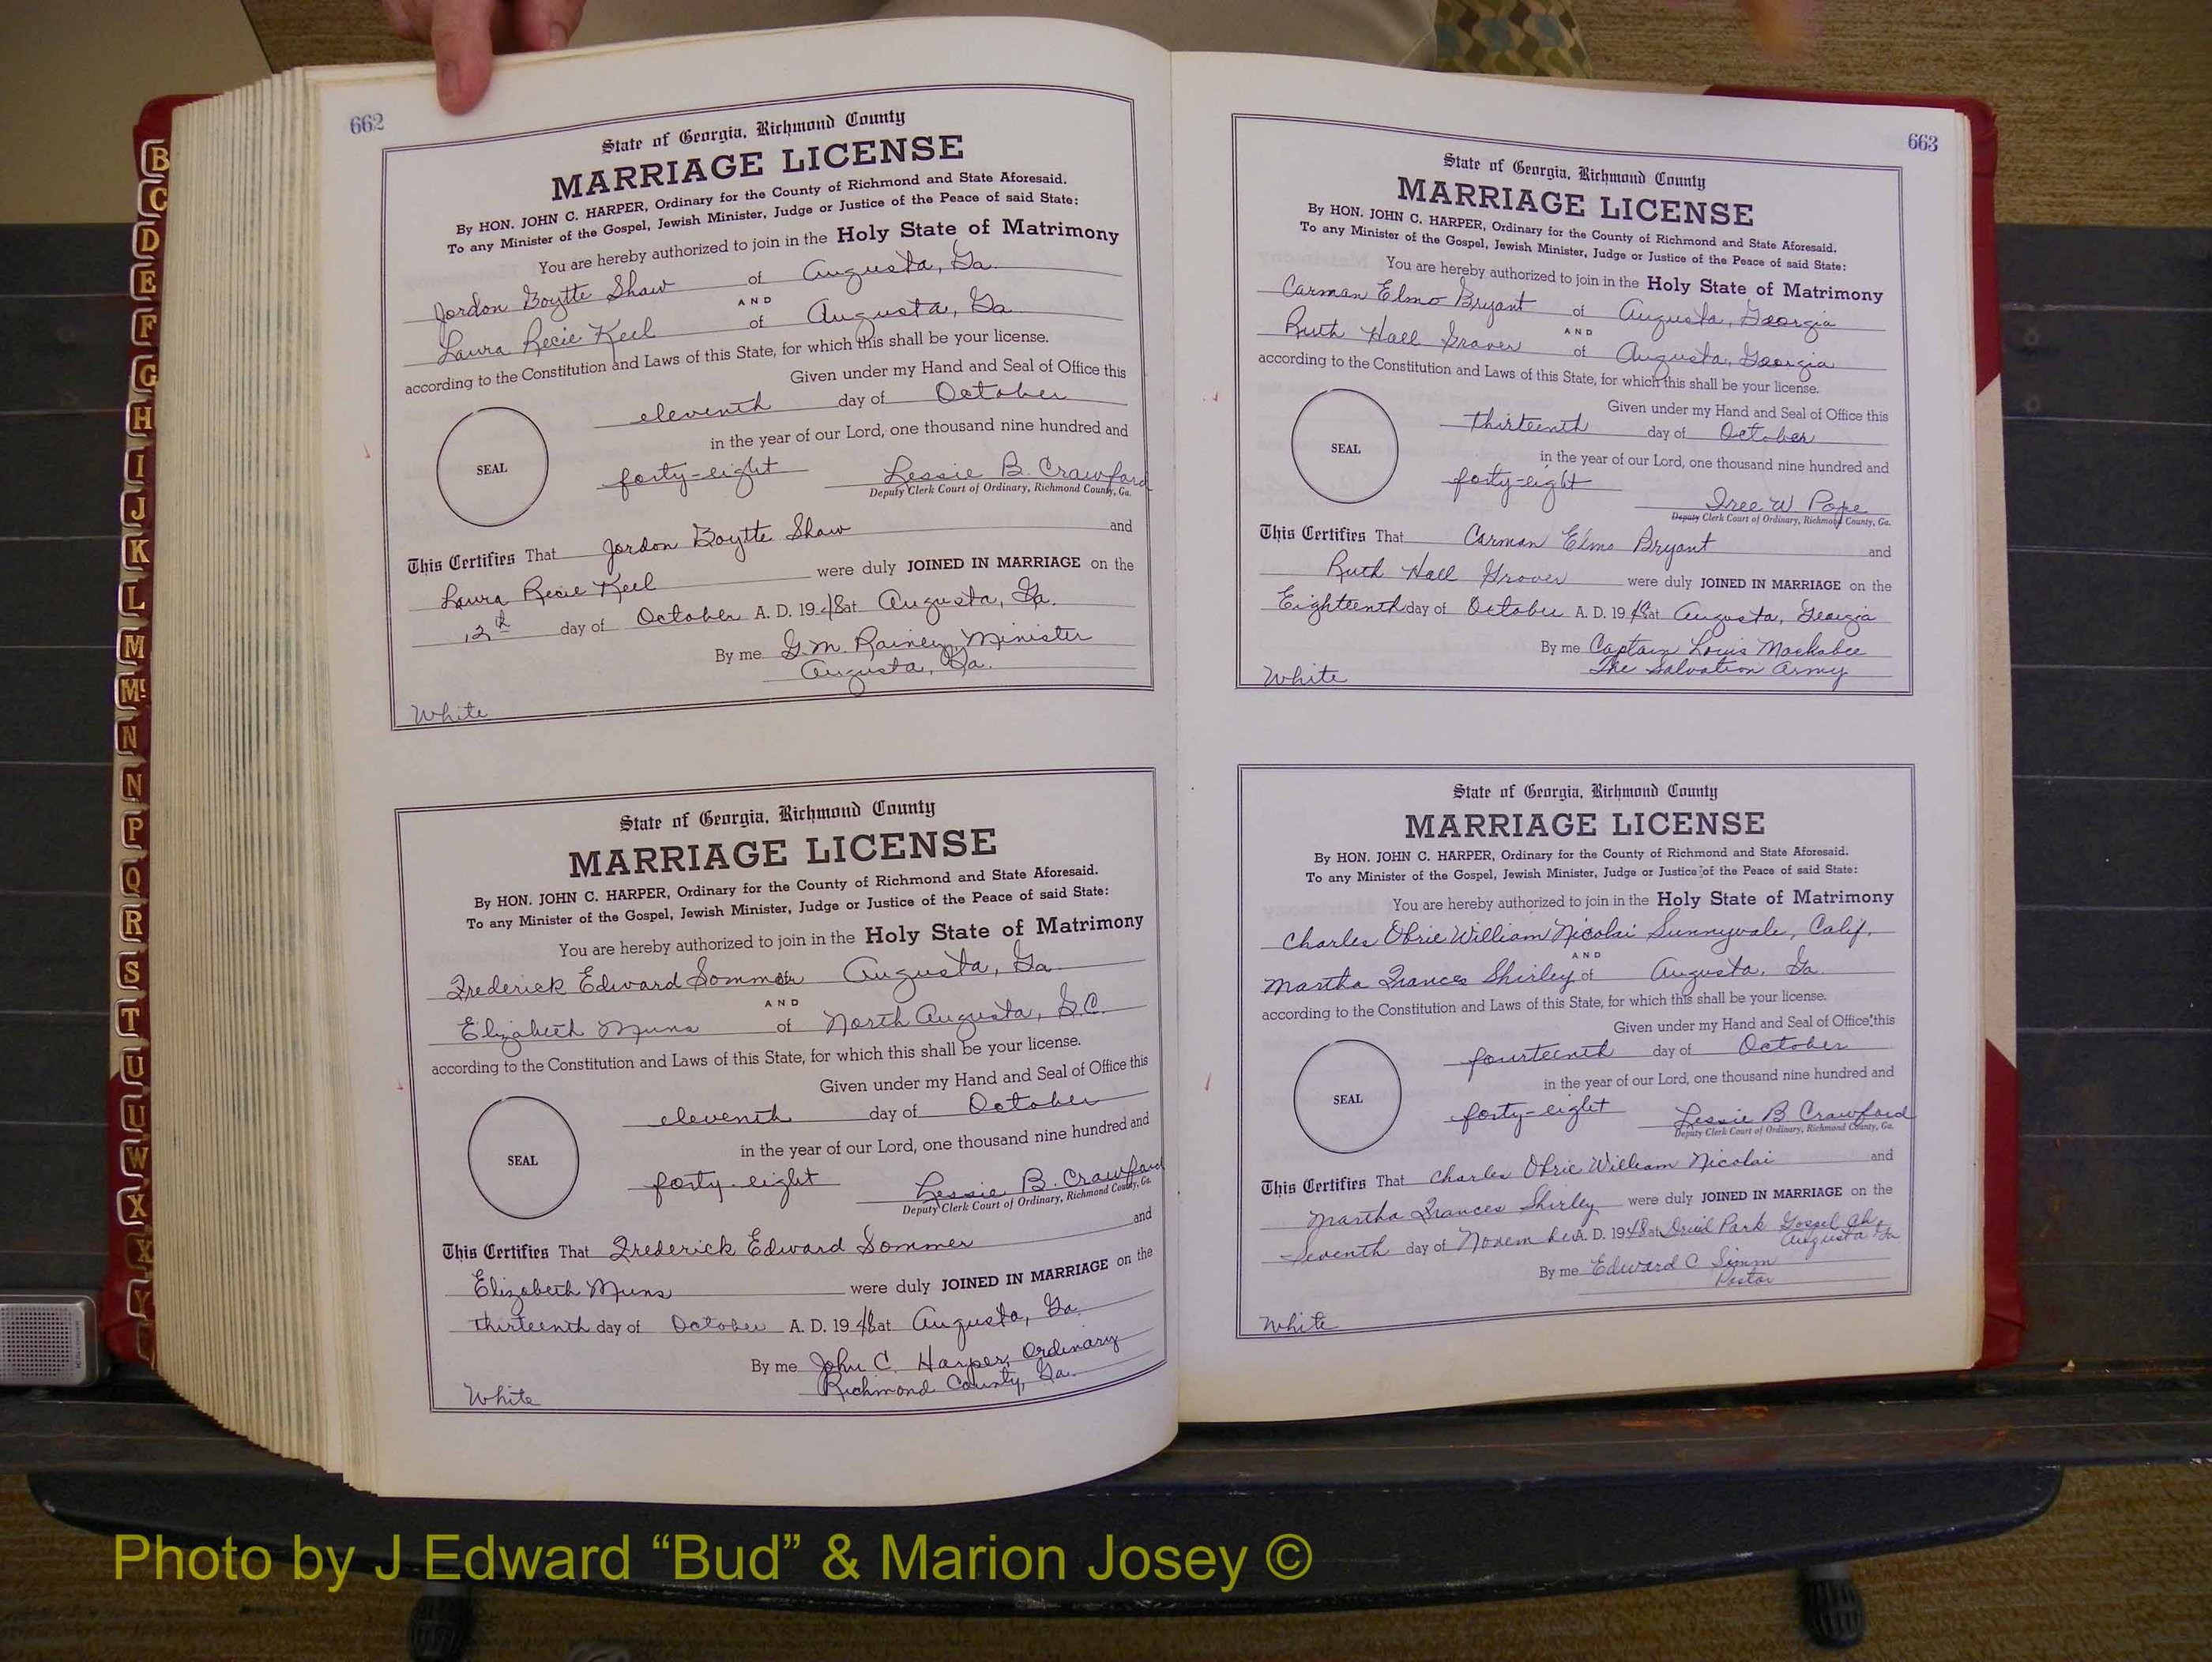 662
State of Georgia, Richmond County
MARRIAGE LICENSE
By HON. JOHN C. HARPER, Ordinary for the County of Richmond and State Aforesaid.
To any Minister of the Gospel, Jewish Minister, Judge or Justice of the Peace of said State:
You are hereby authorized to join in the Holy State of Matrimony
Jordon Boytte Shaw of Augusta, Ga.
AND
Laura Recie Keel of Augusta, Ga
according to the Constitution and Laws of this State, for which this shall be your license.
Given under my Hand and Seal of Office this
eleventh day of October
in the year of our Lord, one thousand nine hundred and
SEAL
forty-eight Lessie B. Crawford
Deputy Clerk Court of Ordinary, Richmond County, Ga.
This Certifies That Jordon Boytte Shaw and
Laura Recie Keel were duly JOINED IN MARRIAGE on the
day of October A. D. 1948 at Augusta, Ga.
By me G. M. Rainey, Minister
Augusta, Ga.
White
State of Georgia, Richmond County
MARRIAGE LICENSE
By HON. JOHN C. HARPER, Ordinary for the County of Richmond and State Aforesaid.
To any Minister of the Gospel, Jewish Minister, Judge or Justice of the Peace of said State:
You are hereby authorized to join in the Holy State of Matrimony
Frederick Edward Sommer of Augusta, Ga
AND
Elizabeth Muns of North Augusta, S.C.
according to the Constitution and Laws of this State, for which this shall be your license.
Given under my Hand and Seal of Office this
eleventh day of October
in the year of our Lord, one thousand nine hundred and
SEAL
forty-eight Lessie B. Crawford
Deputy Clerk Court of Ordinary, Richmond County, Ga.
This Certifies That Frederick Edward Sommer and
Elizabeth Muns were duly JOINED IN MARRIAGE on the
thirteenth day of October A. D. 1948 at Augusta, Ga.
By me John C. Harper, Ordinary
Richmond County, Ga.
White
663
State of Georgia, Richmond County
MARRIAGE LICENSE
By HON. JOHN C. HARPER, Ordinary for the County of Richmond and State Aforesaid.
To any Minister of the Gospel, Jewish Minister, Judge or Justice of the Peace of said State:
You are hereby authorized to join in the Holy State of Matrimony
Carman Elmo Bryant of Augusta, Georgia
AND
Ruth Hall Graver of Augusta, Georgia
according to the Constitution and Laws of this State, for which this shall be your license.
Given under my Hand and Seal of Office this
thirteenth day of October
in the year of our Lord, one thousand nine hundred and
SEAL
forty-eight Iree W. Pope
Deputy Clerk Court of Ordinary, Richmond County, Ga.
This Certifies That Carman Elmo Bryant and
Ruth Hall Grover were duly JOINED IN MARRIAGE on the
Eighteenth day of October A. D. 1948 at Augusta, Georgia
By me Captain Louis Mackabee
The Salvation Army
White
State of Georgia, Richmond County
MARRIAGE LICENSE
By HON. JOHN C. HARPER, Ordinary for the County of Richmond and State Aforesaid.
To any Minister of the Gospel, Jewish Minister, Judge or Justice of the Peace of said State:
You are hereby authorized to join in the Holy State of Matrimony
Charles Obrie William Nicolai Sunnyvale, Calif.
AND
Martha Frances Shirley of Augusta, Ga.
according to the Constitution and Laws of this State, for which this shall be your license.
Given under my Hand and Seal of Office this
fourteenth day of October
in the year of our Lord, one thousand nine hundred and
SEAL
forty-eight Lessie B. Crawford
Deputy Clerk Court of Ordinary, Richmond County, Ga.
This Certifies That Charles Obrie William Nicolai and
Martha Frances Shirley were duly JOINED IN MARRIAGE on the
Seventh day of November A. D. 1948 at Druid Park Gospel Ch.
Augusta Ga
By me Edward C Simm
Pastor
White
B
C
D
E
F
G
H
I
J
K
L
M
Mc
N
N
P
Q
R
S
T
U
U
W
X
X
Y
Photo by J Edward “Bud” & Marion Josey ©